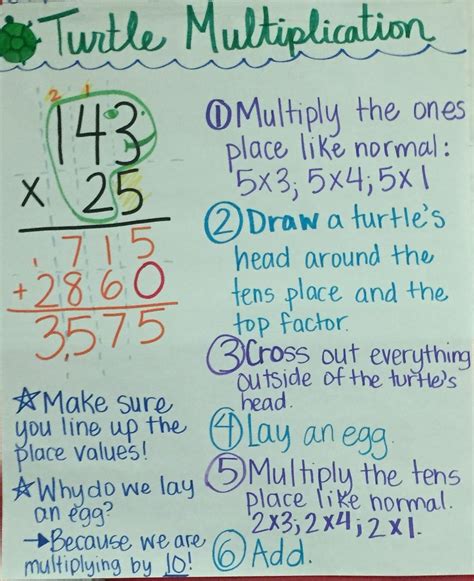 Turtle Multiplication
2 1
143
x 25
1 715
+2860
3,575
☆Make sure
you line up the
place values!
☆Why do we lay
an egg?
→Because we are
multiplying by 10!
①Multiply the ones
place like normal:
5x3; 5x4; 5x1
②Draw a turtle's
head around the
tens place and the
top factor.
③Cross out everything
outside of the turtle's
head.
④Lay an egg.
⑤Multiply the tens
place like normal.
2x3; 2x4; 2x1.
⑥Add.